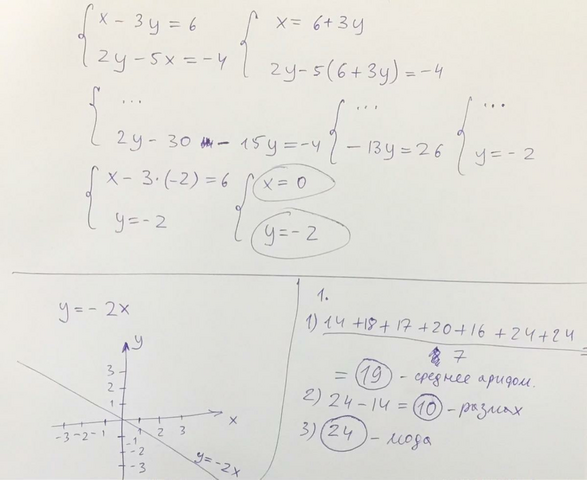 x - 3y = 6
2y - 5x = -4
x = 6 + 3y
2y - 5(6 + 3y) = -4
...
2y - 30 - 15y = -4
...
-13y = 26
...
y = -2
x - 3·(-2) = 6
y = -2
x = 0
y = -2
y = - 2x
y
3
2
1
-3 -2 -1 1 2 3 x
-1
-2
-3
y = -2x
1.
1) 14 + 18 + 17 + 20 + 16 + 24 + 24 =
7
= 19 - среднее арифм.
2) 24 - 14 = 10 - размах
3) 24 - мода